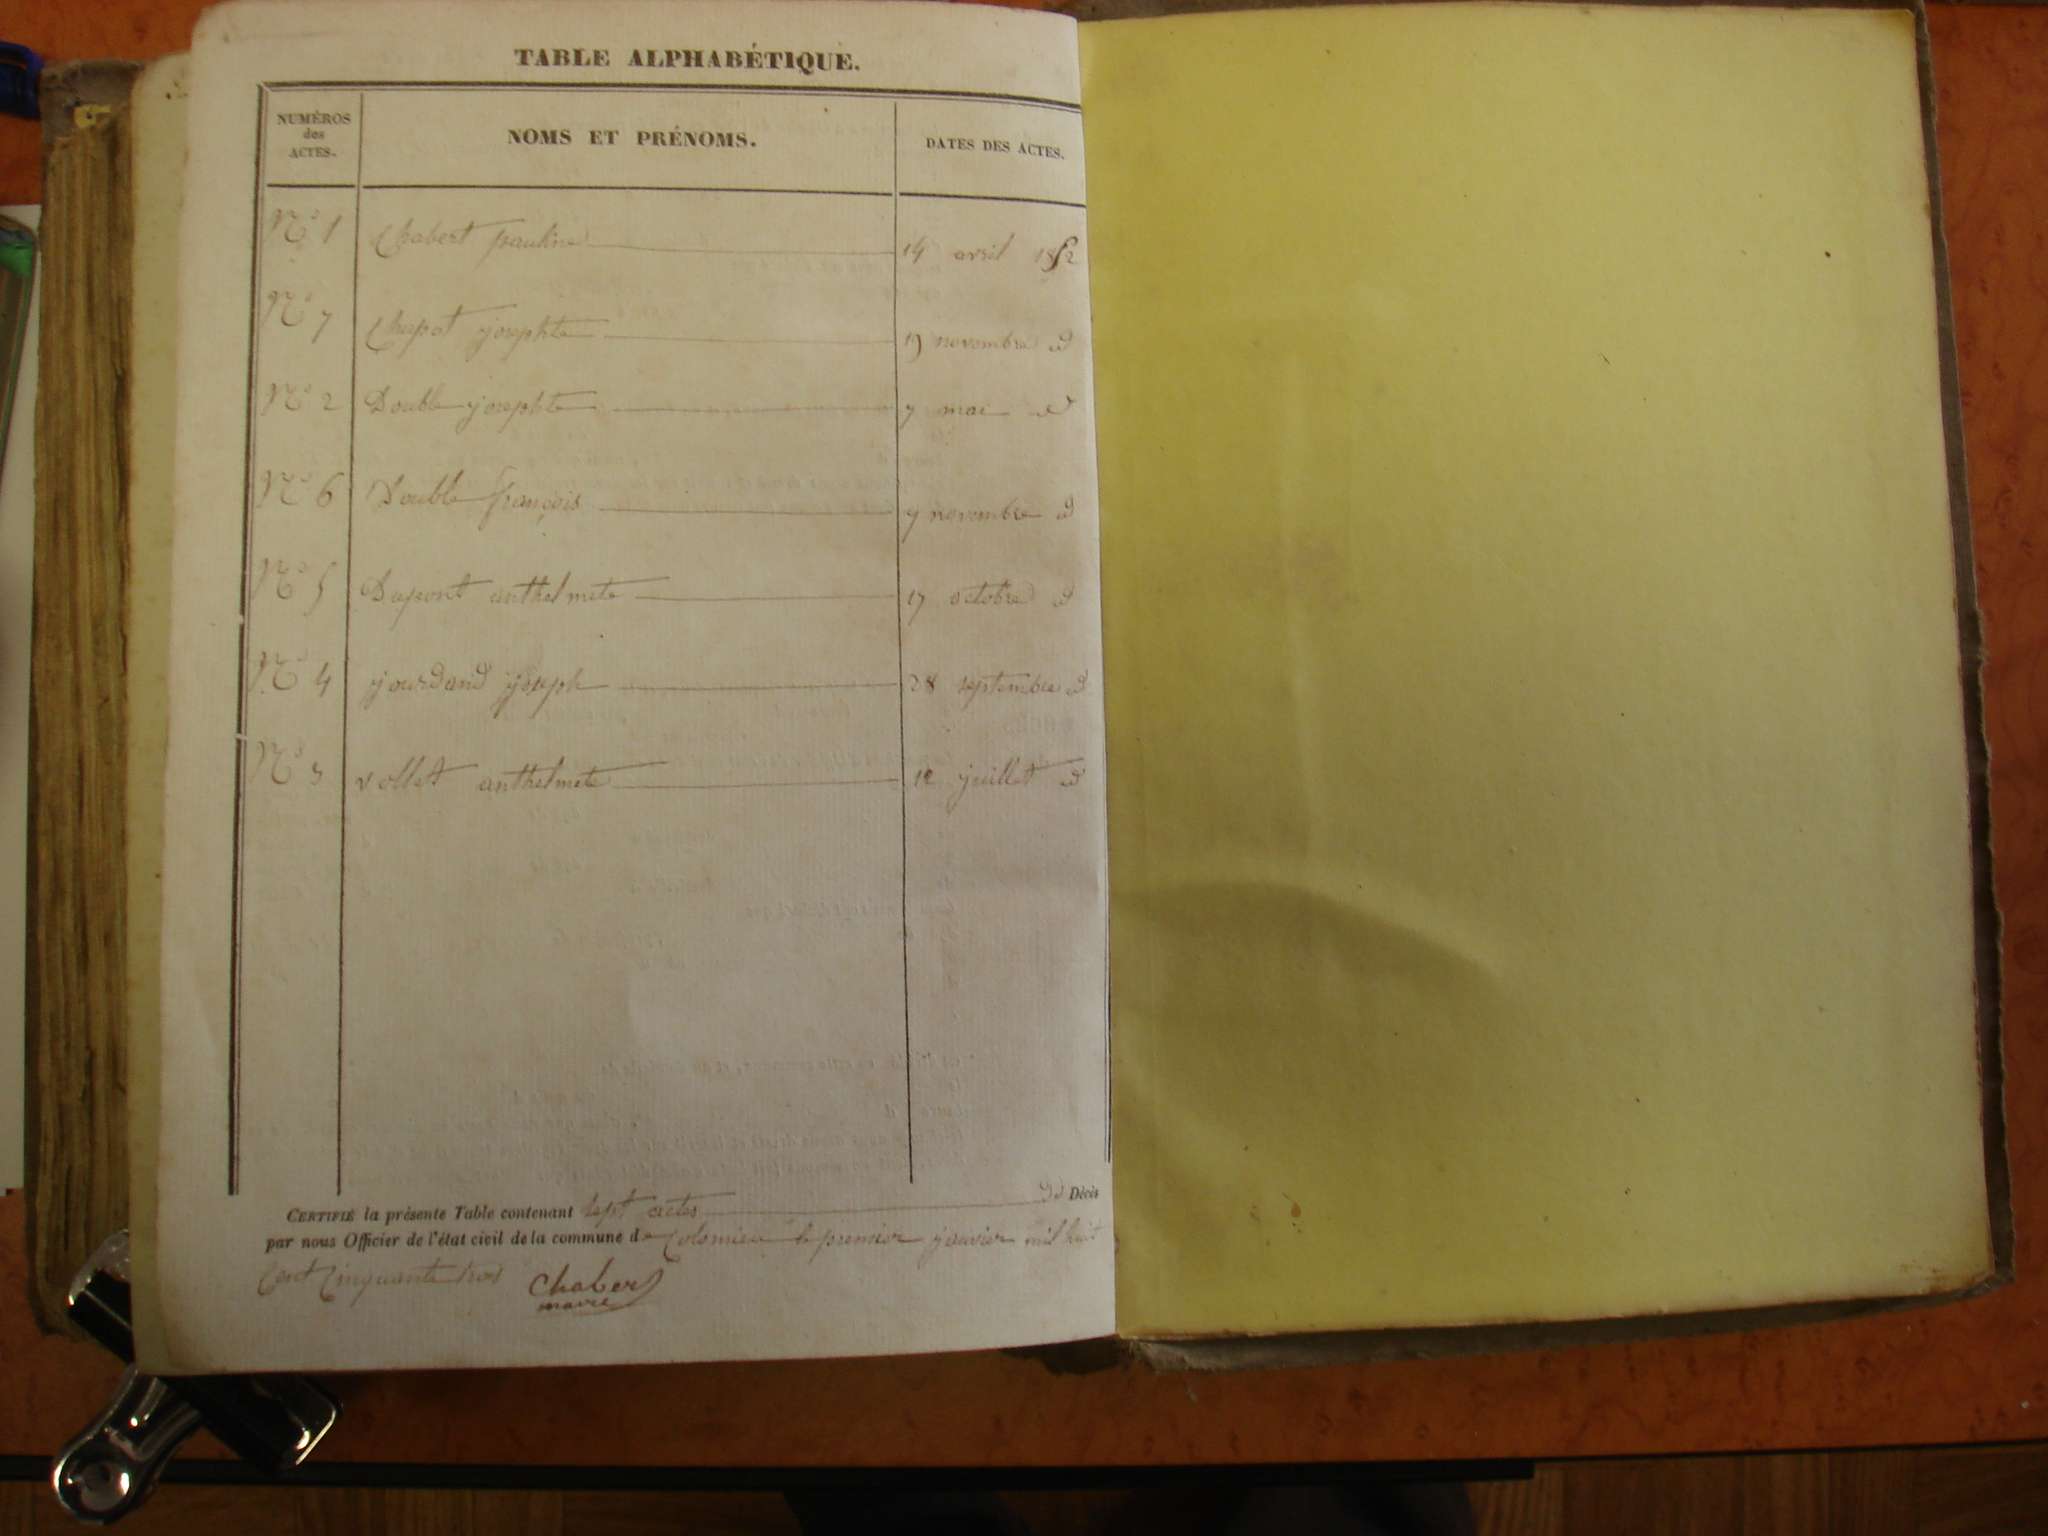 TABLE ALPHABÉTIQUE.
NUMÉROS
des
ACTES.
NOMS ET PRÉNOMS.
DATES DES ACTES.
N.o 1 Chabert pauline 14 avril 1852
N.o 7 Chapot josephte 19 novembre d
N.o 2 Double josephte 7 mai d
N.o 6 Double françois 9 novembre d
N.o 5 Dupont anthelmete 17 octobre d
N.o 4 jourdand joseph 28 septembre d
N.o 3 vollet anthelmete 12 juillet d
CERTIFIÉ la présente Table contenant sept actes de Décès
par nous Officier de l'état civil de la commune de Colomieu le premier janvier mil huit
Cent Cinquante trois
Chabert
maire